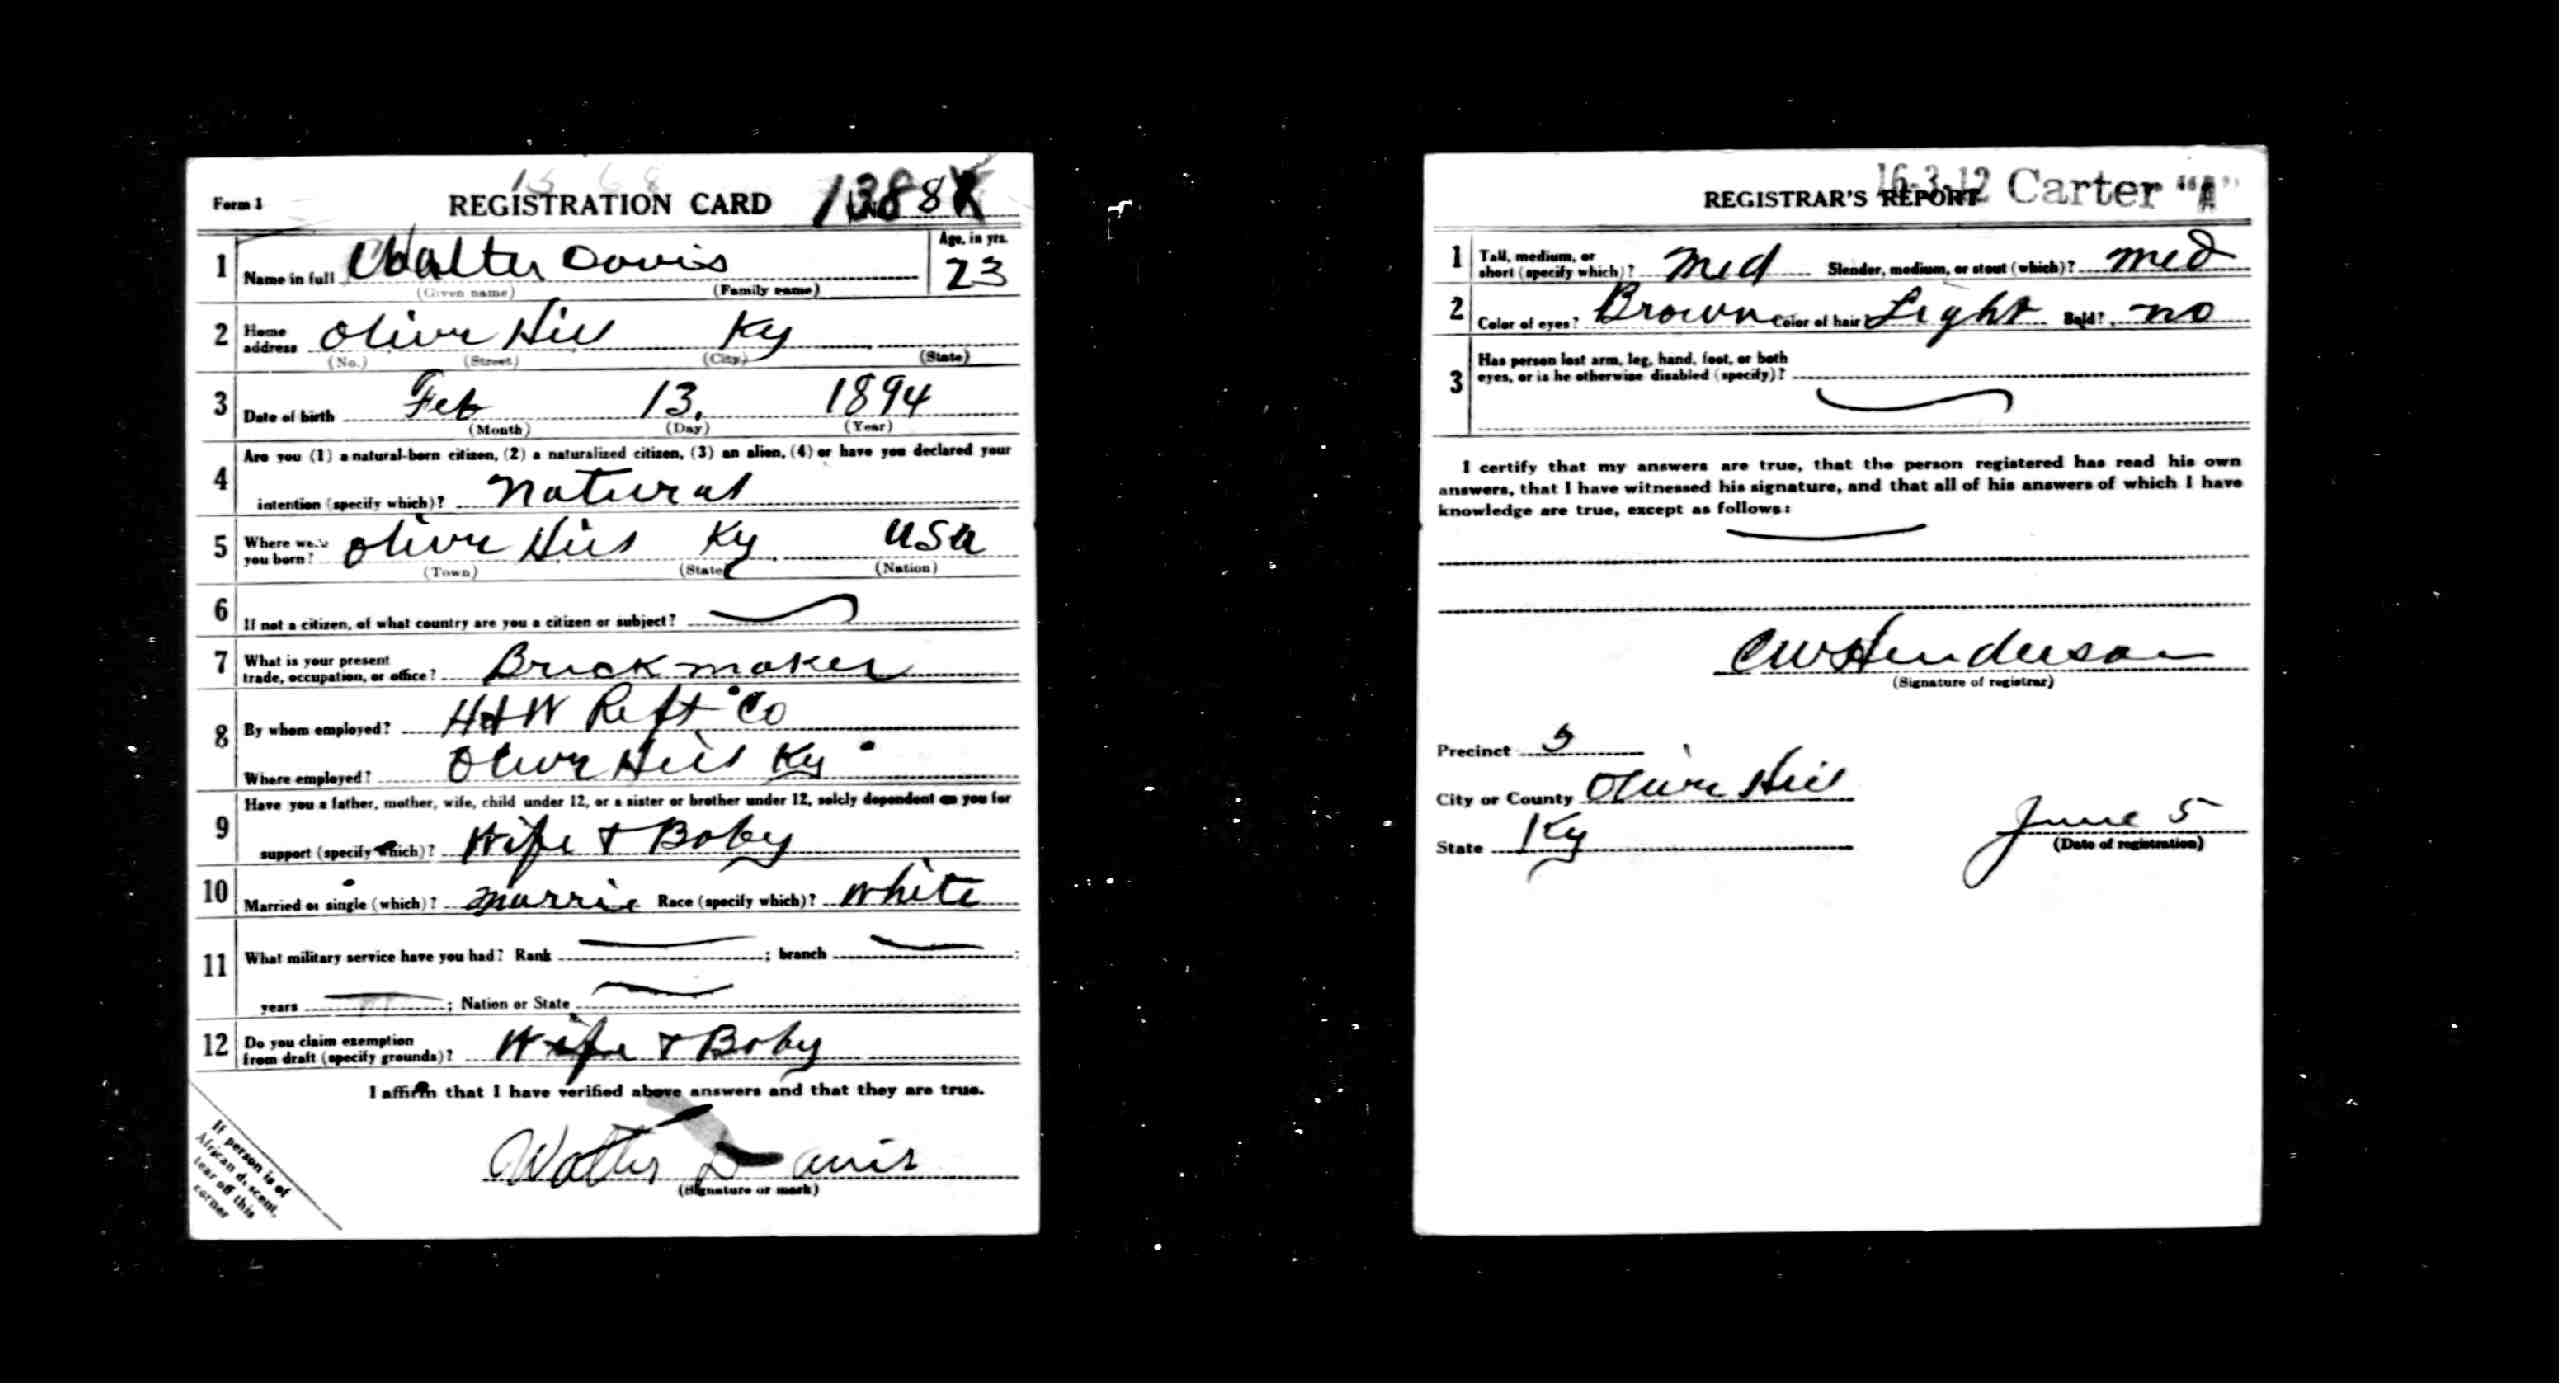 Form 1
REGISTRATION CARD
1 Name in full Walter Davis
(Given name) (Family name)
Age, in yrs.
23
2 Home address Olive Hill Ky
(No.) (Street) (City) (State)
3 Date of birth Feb 13, 1894
(Month) (Day) (Year)
4 Are you (1) a natural-born citizen, (2) a naturalized citizen, (3) an alien, (4) or have you declared your
intention (specify which)? Natural
5 Where were you born? Olive Hill Ky USA
(Town) (State) (Nation)
6 If not a citizen, of what country are you a citizen or subject?
7 What is your present
trade, occupation, or office? Brick maker
8 By whom employed? H & W Reft Co
Where employed? Olive Hill Ky
9 Have you a father, mother, wife, child under 12, or a sister or brother under 12, solely dependent on you for
support (specify which)? Wife & Baby
10 Married or single (which)? Marrie Race (specify which)? White
11 What military service have you had? Rank ; branch ;
years ; Nation or State
12 Do you claim exemption
from draft (specify grounds)? Wife & Baby
I affirm that I have verified above answers and that they are true.
Walter Davis
(Signature or mark)
If person is of
African descent,
tear off this
corner
16-3-12 Carter "A"
REGISTRAR'S REPORT
1 Tall, medium, or
short (specify which)? Med Slender, medium, or stout (which)? Med
2 Color of eyes? Brown Color of hair? Light Bald? No
3 Has person lost arm, leg, hand, foot, or both
eyes, or is he otherwise disabled (specify)?
I certify that my answers are true, that the person registered has read his own
answers, that I have witnessed his signature, and that all of his answers of which I have
knowledge are true, except as follows:
CW Henderson
(Signature of registrar)
Precinct 5
City or County Olive Hill
State Ky
June 5
(Date of registration)